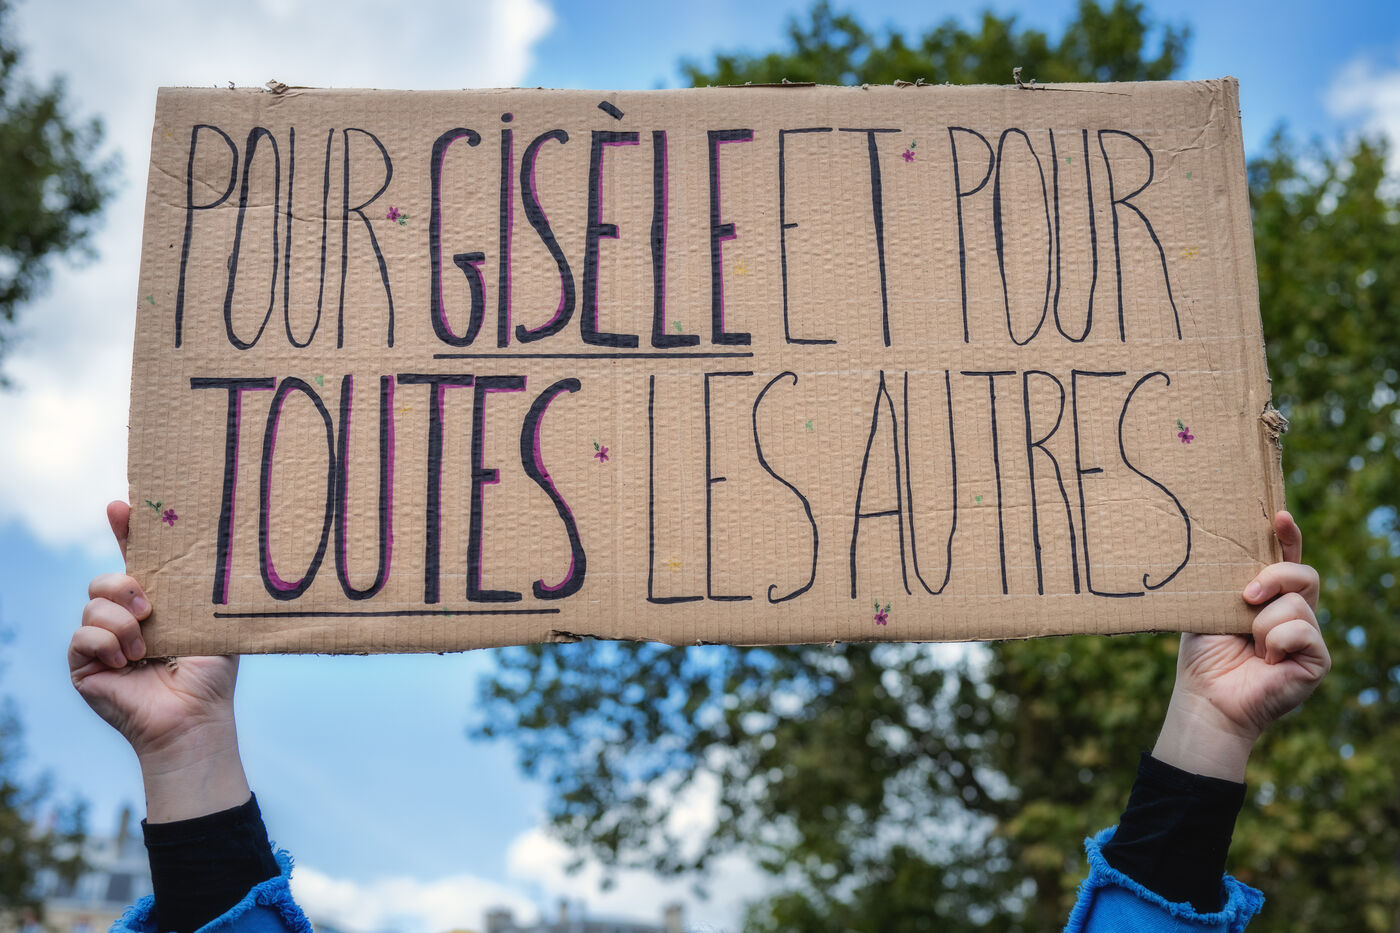 POUR GiSÈLE ET POUR
TOUTES LES AUTRES